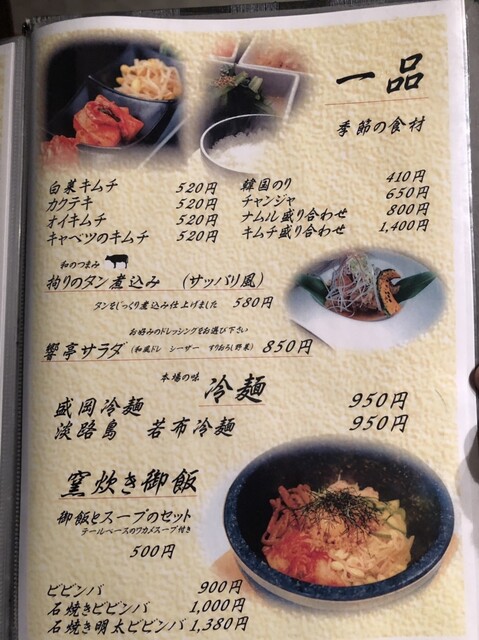 一品
季節の食材
白菜キムチ 520円
カクテキ 520円
オイキムチ 520円
キャベツのキムチ 520円
韓国のり 410円
チャンジャ 650円
ナムル盛り合わせ 800円
キムチ盛り合わせ 1,400円
和のつまみ
拘りのタン煮込み (サッパリ風)
タンをじっくり煮込み仕上げました 580円
お好みのドレッシングをお選び下さい
響亭サラダ (和風ドレ シーザー すりおろし野菜) 850円
本場の味
冷麺
盛岡冷麺 950円
淡路島 若布冷麺 950円
窯炊き御飯
御飯とスープのセット
テールベースのワカメスープ付き
500円
ビビンバ 900円
石焼きビビンバ 1,000円
石焼き明太ビビンバ 1,380円